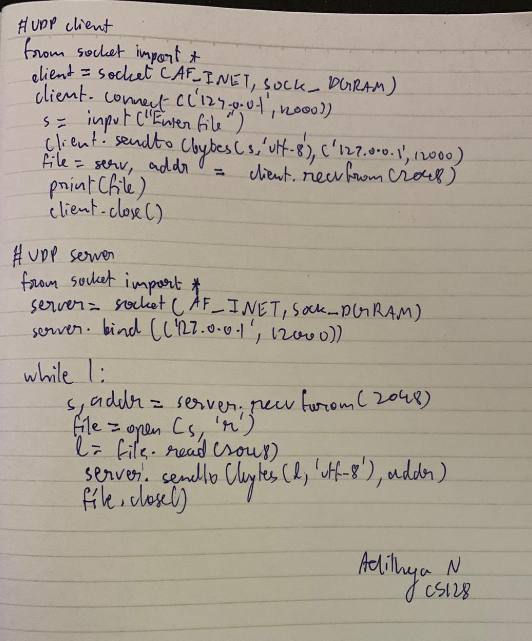 # UDP client
from socket import *
client = socket (AF_INET, SOCK_DGRAM)
client. connect (('127.0.0.1', 12000))
s = input ("Enter file")
client. sendto (bytes(s,'utf-8'), ('127.0.0.1', 12000)
file = serv, addr = client. recvfrom (2048)
print (file)
client.close()
# UDP server
from socket import *
server = socket (AF_INET, SOCK_DGRAM)
server. bind (('127.0.0.1', 12000))
while 1:
s, addr = server. recvfrom (2048)
file = open (s, 'r')
l = file. read (2048)
server. sendto (bytes (l, 'utf-8'), addr)
file. close()
Adithya N
CS128